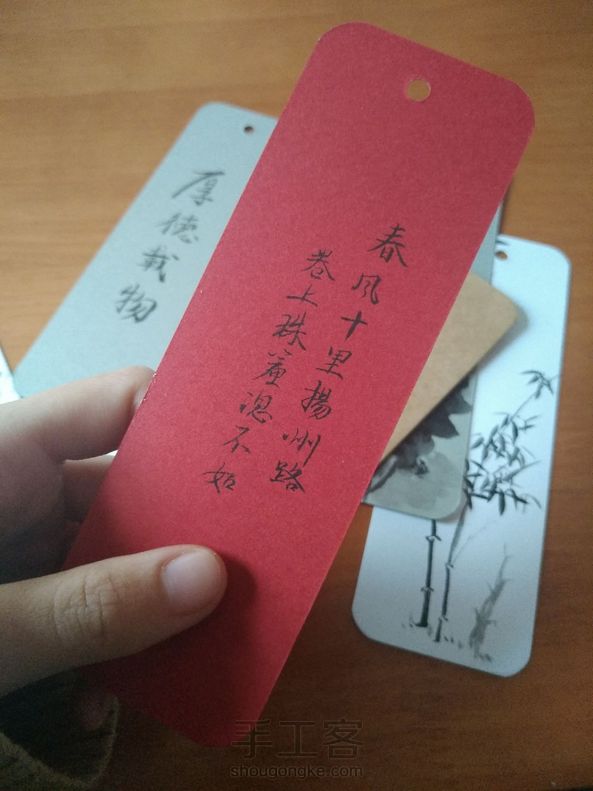 春风十里揚州路
卷上珠簾總不如
厚德载物
手工客
shougongke.com